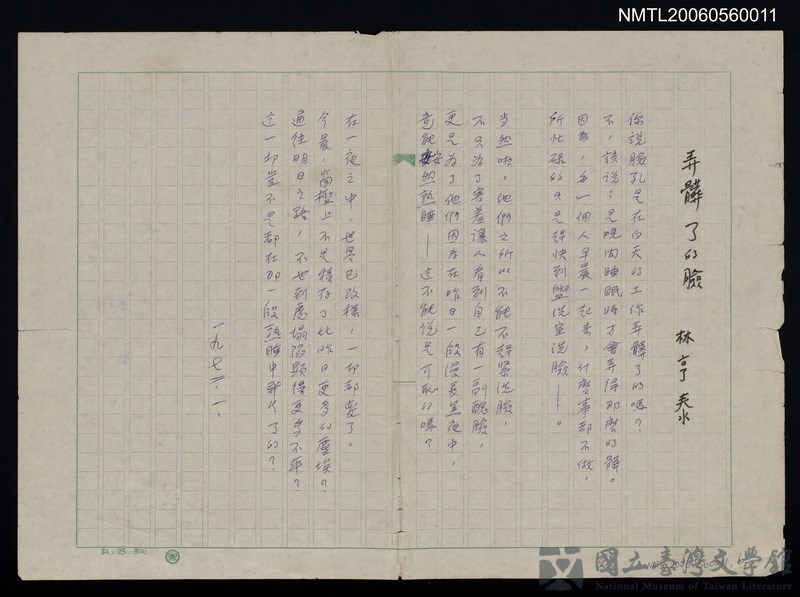 NMTL20060560011
弄髒了的臉
林亨泰
你說臉孔是在白天的工作弄髒了的嗎?
不,該說:是晚間睡眠時才會弄得那麼的髒。
因為,每一個人早晨一起來,什麼事都不做,
所忙碌的只是趕快到盥洗室洗臉——。
當然啦,他們之所以不能不趕緊洗臉,
不只為了害羞讓人看到自己有一副醜臉,
更是為了他們因為在昨日一段漫長黑夜中,
竟能安然熟睡——這不能說是可恥的嗎?
在一夜之中,世界已改樣,一切都變了。
今晨,窗檻上不是積存了比昨日更多的塵埃?
通往明日之路,不也到處塌陷顯得更多不平?
這一切豈不是都在那一段熟睡中發生了的?
一九七二.一.
24×25=600
國立臺灣文學館
National Museum of Taiwan Literature